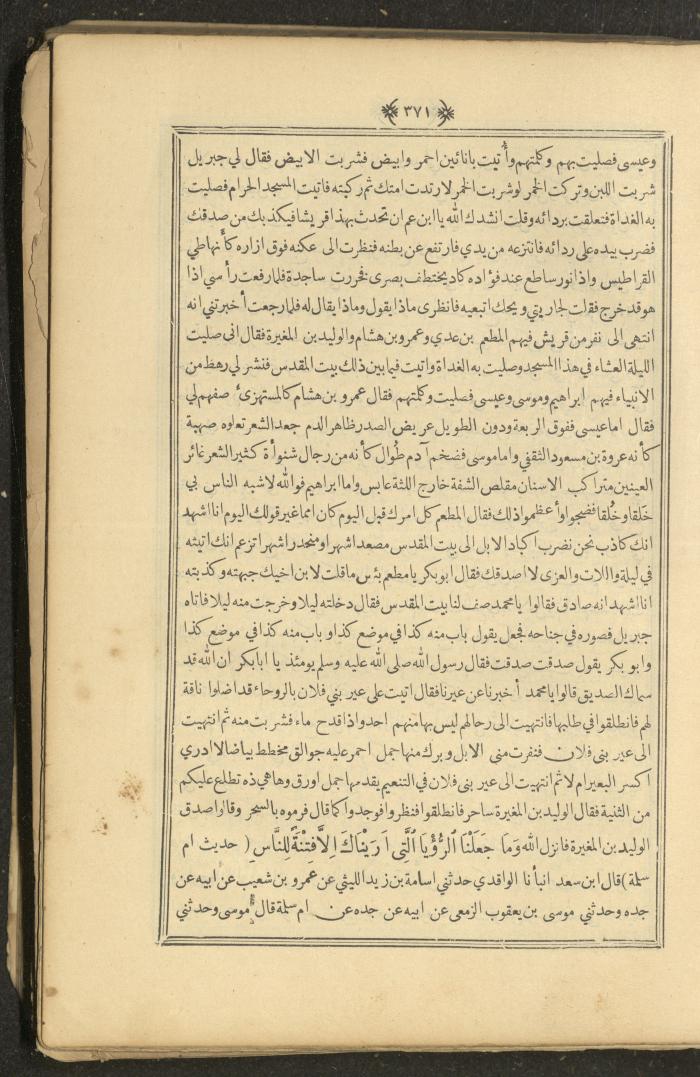 ٣٧١
وعيسى فصليت بهم وكلمتهم وأُتيت بانائين احمر وابيض فشربت الابيض فقال لي جبريل
شربت اللبن وتركت الخمر لو شربت الخمر لارتدت امتك ثم ركبته فاتيت المسجد الحرام فصليت
به الغداة فتعلقت بردائه وقلت انشدك الله يا ابن عم ان تحدث بهذا قريشا فيكذبك من صدقك
فضرب بيده على ردائه فانتزعه من يدي فارتفع عن بطنه فنظرت الى عكنه فوق ازاره كأنها طي
القراطيس واذا نور ساطع عند فؤاده كاد يختطف بصرى فخررت ساجدة فلما رفعت رأسي اذا
هو قد خرج فقلت لجاريتي ويحك اتبعيه فانظرى ماذا يقول وماذا يقال له فلما رجعت أخبرتني انه
انتهى الى نفر من قريش فيهم المطعم بن عدي وعمرو بن هشام والوليد بن المغيرة فقال انى صليت
الليلة العشاء في هذا المسجد وصليت به الغداة واتيت فيما بين ذلك بيت المقدس فنشر لي رهط من
الانبياء فيهم ابراهيم وموسى وعيسى فصليت وكلمتهم فقال عمرو بن هشام كالمستهزئ صفهم لي
فقال اما عيسى ففوق الربعة ودون الطويل عريض الصدر ظاهر الدم جعد الشعر تعلوه صهبة
كأنه عروة بن مسعود الثقفي واما موسى فضخم آدم طُوال كأنه من رجال شنوأة كثير الشعر غائر
العينين متراكب الاسنان مقلص الشفة خارج اللثة عابس واما ابراهيم فوالله لاشبه الناس بي
خَلقا وخُلقا فضجوا وأعظموا ذلك فقال المطعم كل امرك قبل اليوم كان امما غير قولك اليوم انا اشهد
انك كاذب نحن نضرب اكباد الابل الى بيت المقدس مصعدا شهرا ومنحدرا شهرا تزعم انك اتيته
في ليلة واللات والعزى لا اصدقك فقال ابو بكر يا مطعم بئس ما قلت لابن اخيك جبهته وكذبته
انا اشهد انه صادق فقالوا يا محمد صف لنا بيت المقدس فقال دخلته ليلا وخرجت منه ليلا فاتاه
جبريل فصوره في جناحه فجعل يقول باب منه كذا في موضع كذا وباب منه كذا في موضع كذا
وابو بكر يقول صدقت صدقت فقال رسول الله صلى الله عليه وسلم يومئذ يا ابا بكر ان الله قد
سماك الصديق قالوا يا محمد أخبرنا عن عيرنا فقال اتيت على عير بني فلان بالروحاء قد اضلوا ناقة
لهم فانطلقوا في طلبها فانتهيت الى رحالهم ليس بها منهم احد واذا قدح ماء فشربت منه ثم انتهيت
الى عير بنى فلان فنفرت منى الابل وبرك منها جمل احمر عليه جوالق مخطط بياضا لا ادرى
اكسر البعير ام لا ثم انتهيت الى عير بنى فلان في التنعيم يقدمها جمل اورق وها هي ذه تطلع عليكم
من الثنية فقال الوليد بن المغيرة ساحر فانطلقوا فنظروا فوجدوا كما قال فرموه بالسحر وقالوا صدق
الوليد بن المغيرة فانزل الله وَمَا جَعَلْنَا الرُّؤْيَا الَّتِى اَرَيْنَاكَ اِلَّا فِتْنَةً لِلنَّاسِ (حديث ام
سلمة) قال ابن سعد انبأنا الواقدي حدثني اسامة بن زيد الليثي عن عمرو بن شعيب عن ابيه عن
جده وحدثني موسى بن يعقوب الزمعى عن ابيه عن جده عن ام سلمة قال موسى وحدثني